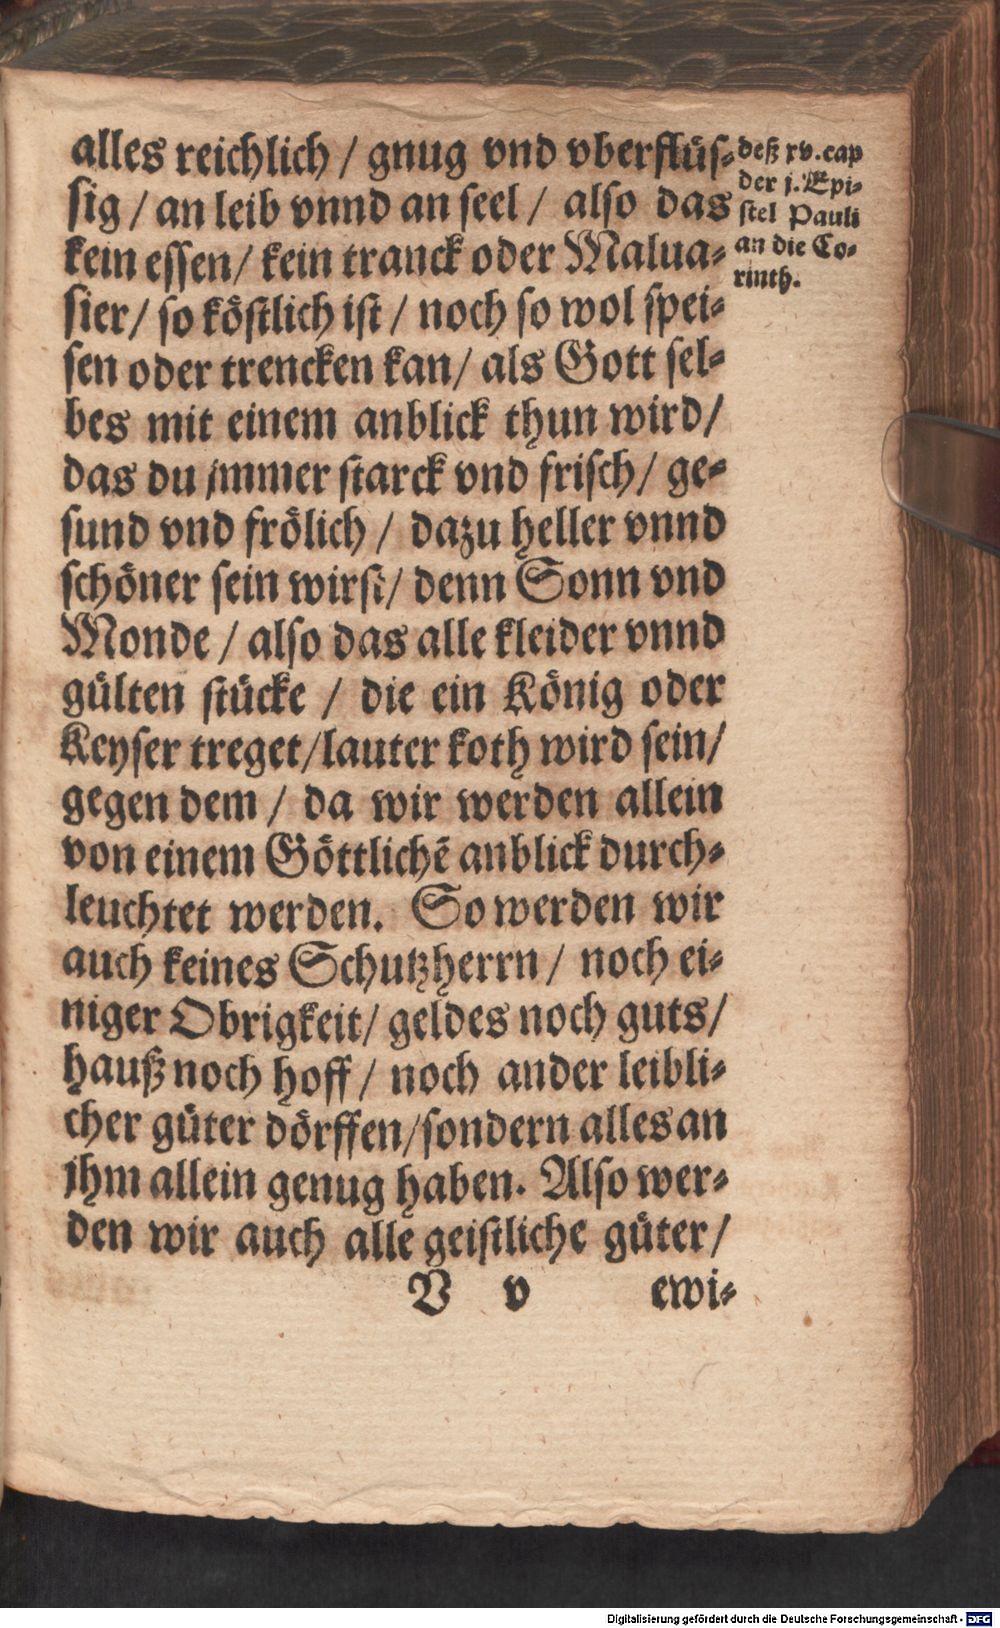 alles reichlich / gnug vnd vberflüs-
sig / an leib vnnd an seel / also das
kein essen / kein tranck oder Malua-
sier / so köstlich ist / noch so wol spei-
sen oder trencken kan / als Gott sel-
bes mit einem anblick thun wird /
das du jmmer starck vnd frisch / ge-
sund vnd frölich / dazu heller vnnd
schöner sein wirst / denn Sonn vnd
Monde / also das alle kleider vnnd
gülten stücke / die ein König oder
Keyser treget / lauter koth wird sein /
gegen dem / da wir werden allein
von einem Göttlichē anblick durch-
leuchtet werden. So werden wir
auch keines Schutzherrn / noch ei-
niger Obrigkeit / geldes noch guts /
hauß noch hoff / noch ander leibli-
cher güter dörffen / sondern alles an
jhm allein genug haben. Also wer-
den wir auch alle geistliche güter /
V v ewi-
deß xv. cap
der j. Epi-
stel Pauli
an die Co-
rinth.
Digitalisierung gefördert durch die Deutsche Forschungsgemeinschaft - DFG